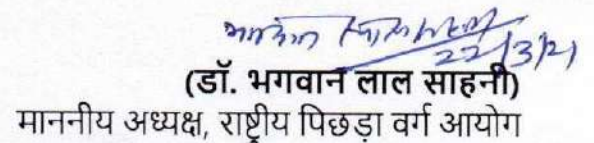 22/3/21
(डॉ. भगवान लाल साहनी)
माननीय अध्यक्ष, राष्ट्रीय पिछड़ा वर्ग आयोग